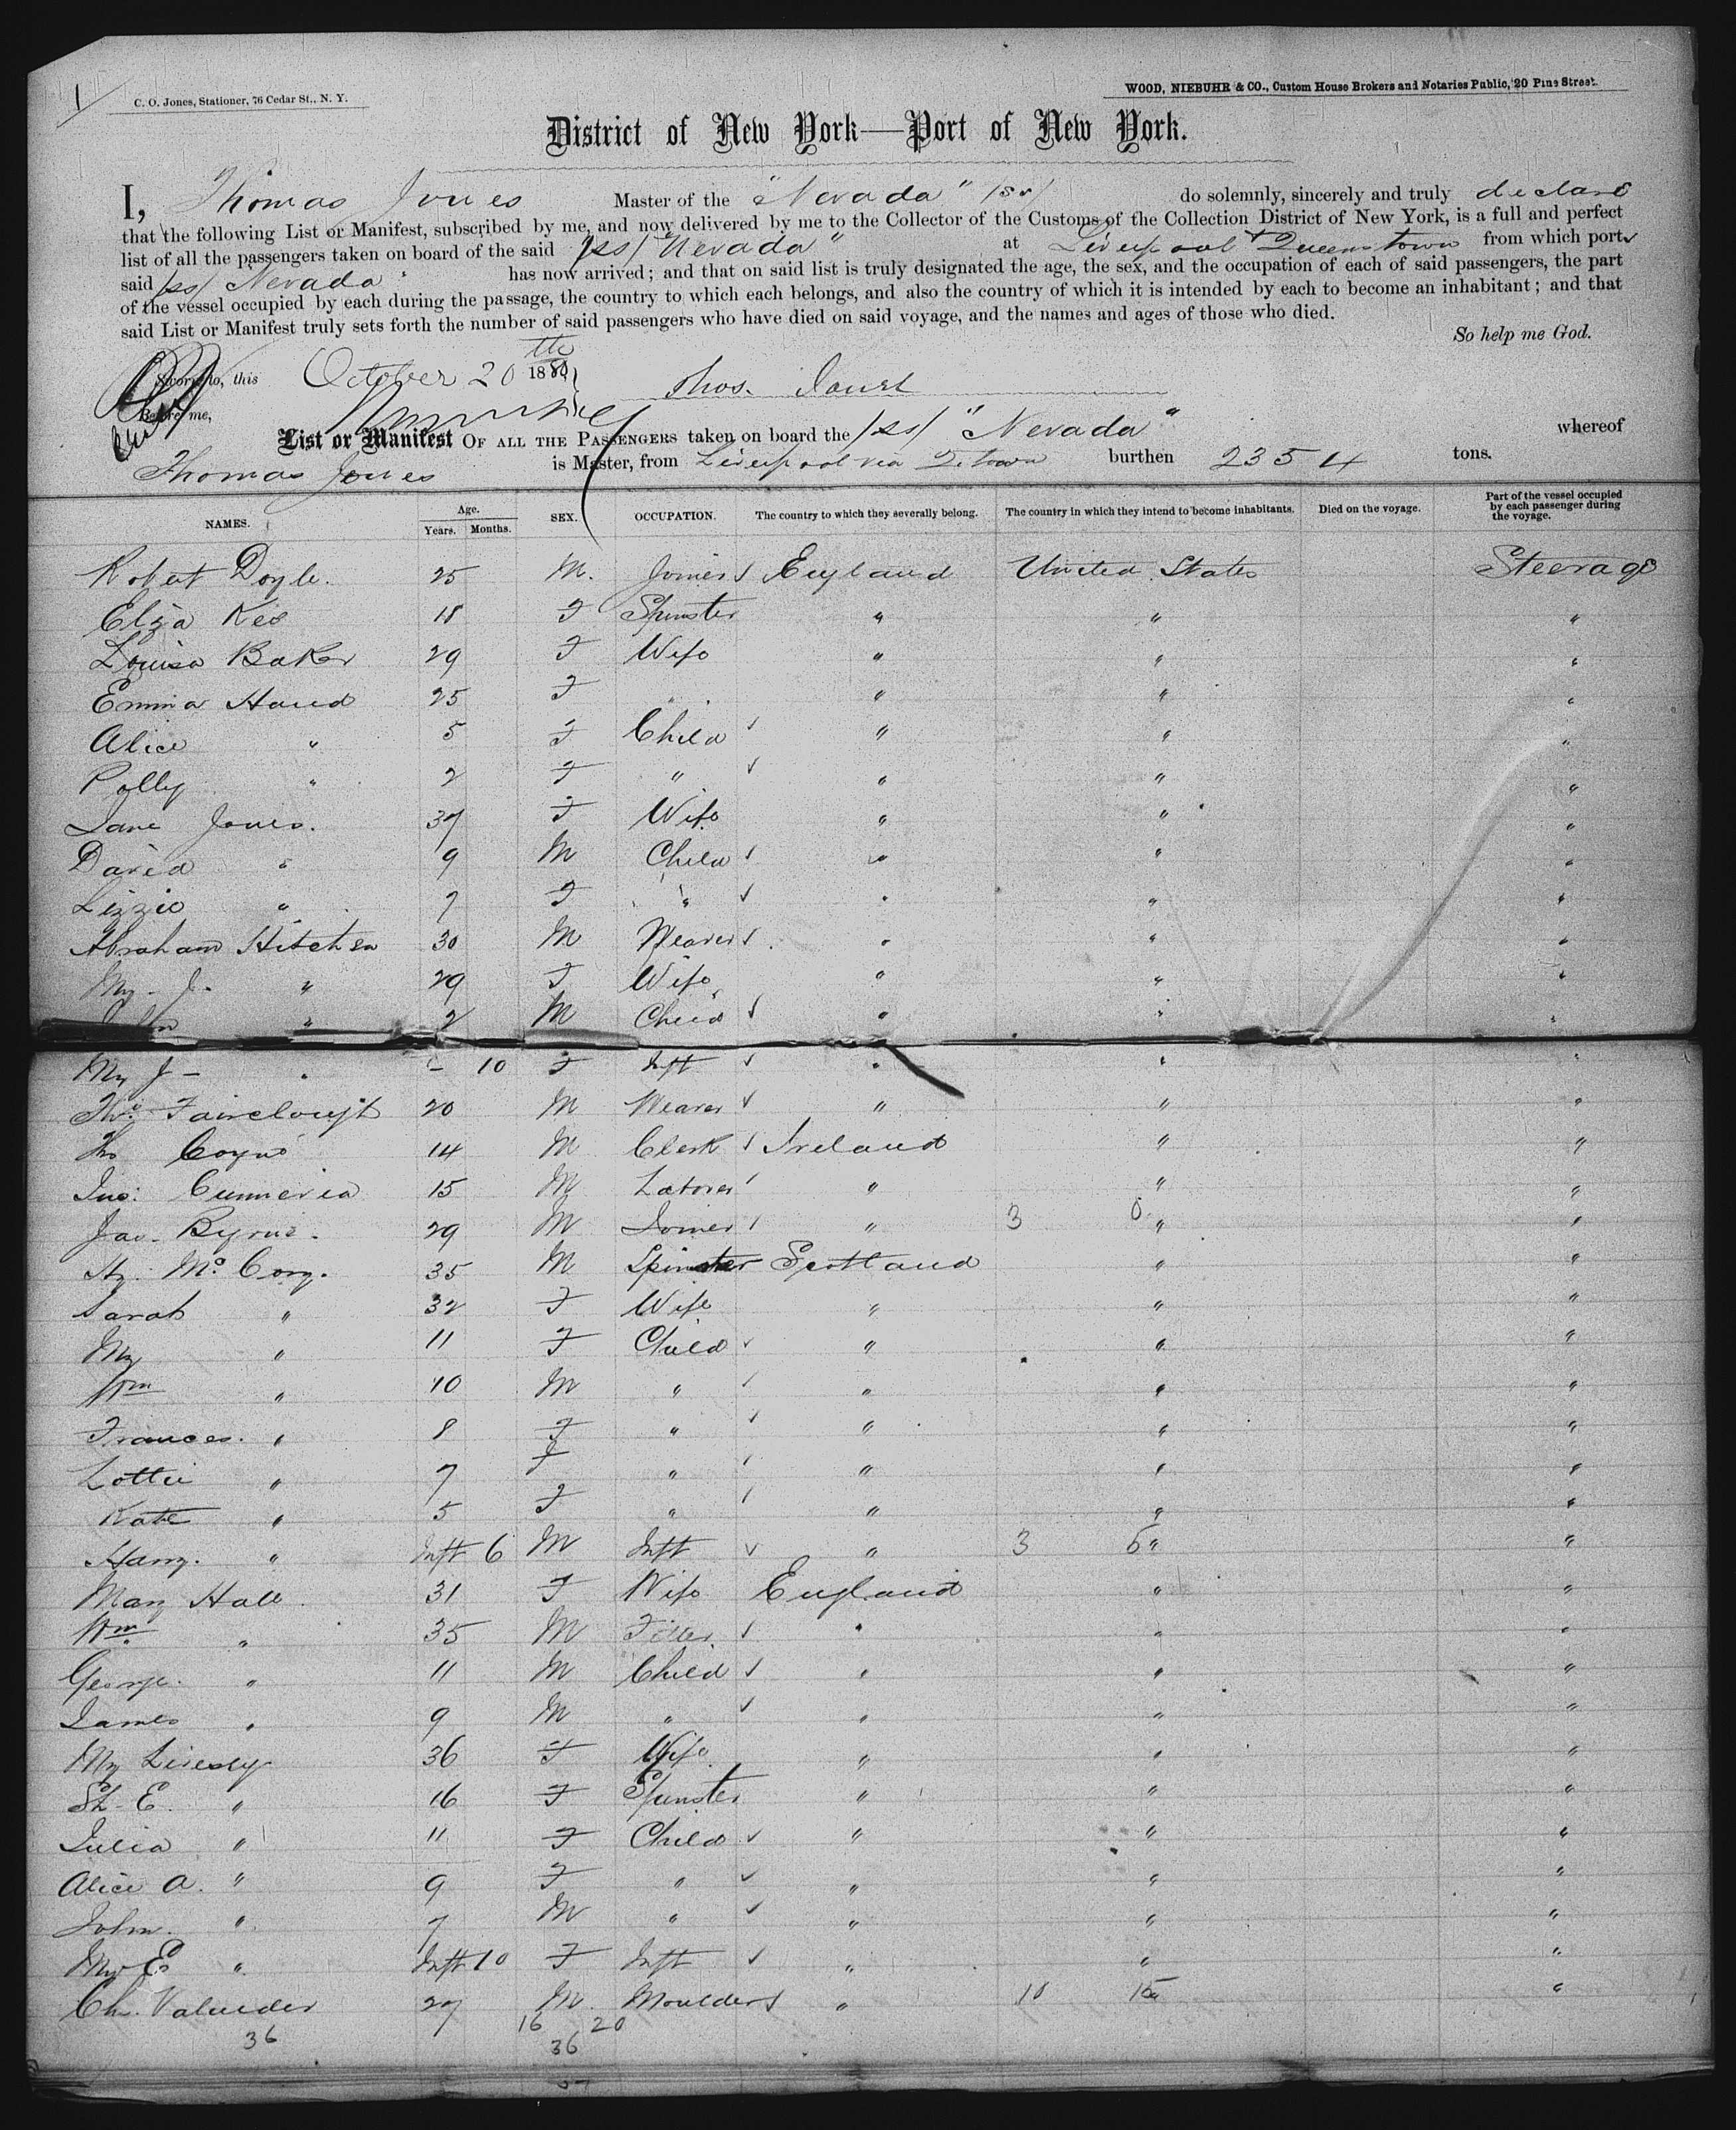 1
C. O. Jones, Stationer, 76 Cedar St., N. Y.
WOOD, NIEBUHR & CO., Custom House Brokers and Notaries Public, 20 Pine Street.
District of New York—Port of New York.
I, Thomas Jones Master of the "Nevada" /ss/ do solemnly, sincerely and truly declare
that the following List or Manifest, subscribed by me, and now delivered by me to the Collector of the Customs of the Collection District of New York, is a full and perfect
list of all the passengers taken on board of the said /ss/ "Nevada" at Liverpool & Queenstown from which ports
said /ss/ Nevada has now arrived; and that on said list is truly designated the age, the sex, and the occupation of each of said passengers, the part
of the vessel occupied by each during the passage, the country to which each belongs, and also the country of which it is intended by each to become an inhabitant; and that
said List or Manifest truly sets forth the number of said passengers who have died on said voyage, and the names and ages of those who died.
So help me God.
Sworn to, this October 20th 1880 Thos. Jones
Before me,
List or Manifest OF ALL THE PASSENGERS taken on board the /ss/ "Nevada" whereof
Thomas Jones is Master, from Liverpool via Q.town burthen 2354 tons.
NAMES. Age. Years. Months. SEX. OCCUPATION. The country to which they severally belong. The country in which they intend to become inhabitants. Died on the voyage. Part of the vessel occupied by each passenger during the voyage.
Robert Doyle. 25 M. Joiner England United States Steerage
Eliza Kee 18 F Spinster " " "
Louisa Baker 29 F Wife " " "
Emma Hand 25 F " " " "
Alice " 5 F Child " " "
Polly " 2 F " " " "
Jane Jones. 37 F Wife " " "
David " 9 M Child " " "
Lizzie " 7 F " " " "
Abraham Hitchen 30 M Weaver " " "
My. J. " 29 F Wife " " "
John " 2 M Child " " "
My J - " - 10 F Inft " " "
Ths. Fairclough 20 M Weaver " " "
Ths Coyne 14 M Clerk Ireland " "
Jno. 15 M Laborer " " "
Jas. Byrne. 29 M Joiner " 3 0 " "
Hy. McCory. 35 M Spinster Scotland " "
Sarah " 32 F Wife " " "
My " 11 F Child " " "
Wm " 10 M " " " "
Frances. " 8 F " " " "
Lottie " 7 F " " " "
Kate " 5 F " " " "
Harry. " Inft 6 M Inft " 3 5 " "
Mary Hall 31 F Wife England " "
Wm " 35 M " " "
George. " 11 M Child " " "
James " 9 M " " " "
My Livesey 36 F Wife " " "
Sh. E. " 16 F Spinster " " "
Julia " 11 F Child " " "
Alice A. " 9 F " " " "
John. " 7 M " " " "
My E " Inft 10 F Inft " " "
Ch. 27 M. Moulder " 18 15 " "
36 16 20
36